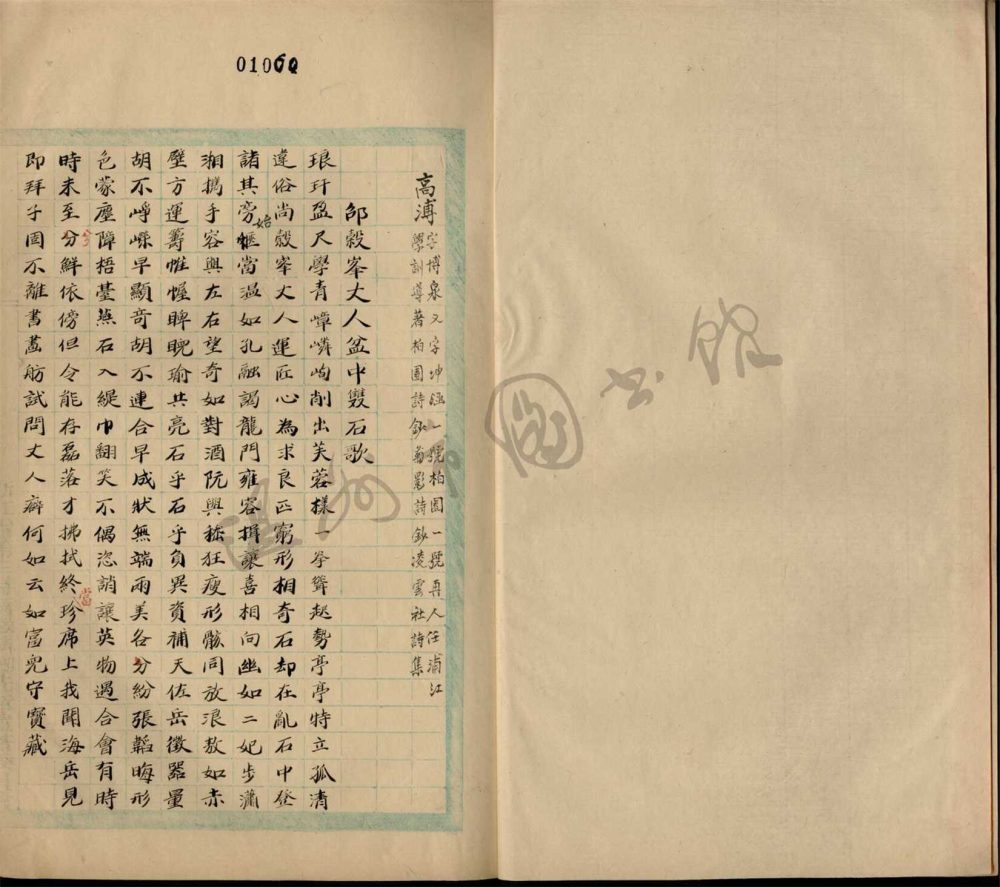 01060
高溥
字博泉又字坤涵一號柏園一號再人任浦江
學訓導著柏園詩鈔菊影詩鈔凌雲社詩集
邵穀峯丈人盆中雙石歌
琅玕盈尺學青嶂嶙峋削出芙蓉樣一拳聳起勢亭亭特立孤清
違俗尚穀峯丈人運匠心為求良匹窮形相奇石却在亂石中登
諸其旁始愜當温如孔融謁龍門雍容揖讓喜相向幽如二妃步瀟
湘攜手容與左右望奇如對酒阮與嵇狂瘦形骸同放浪敖如赤
壁方運籌帷幄睥睨瑜共亮石乎石乎負異資補天佐岳徵器量
胡不崢嶸早顯奇胡不連合早成狀無端兩美各分紛張韜晦形
色蒙塵障梧臺燕石入緹巾翻笑不偶恣誚讓英物遇合會有時
時未至兮鮮依傍但令能存磊落才拂拭終當珍席上我聞海岳見
即拜子固不離書畫舫試問丈人癖何如云如富兒守寶藏
温州市圖書館